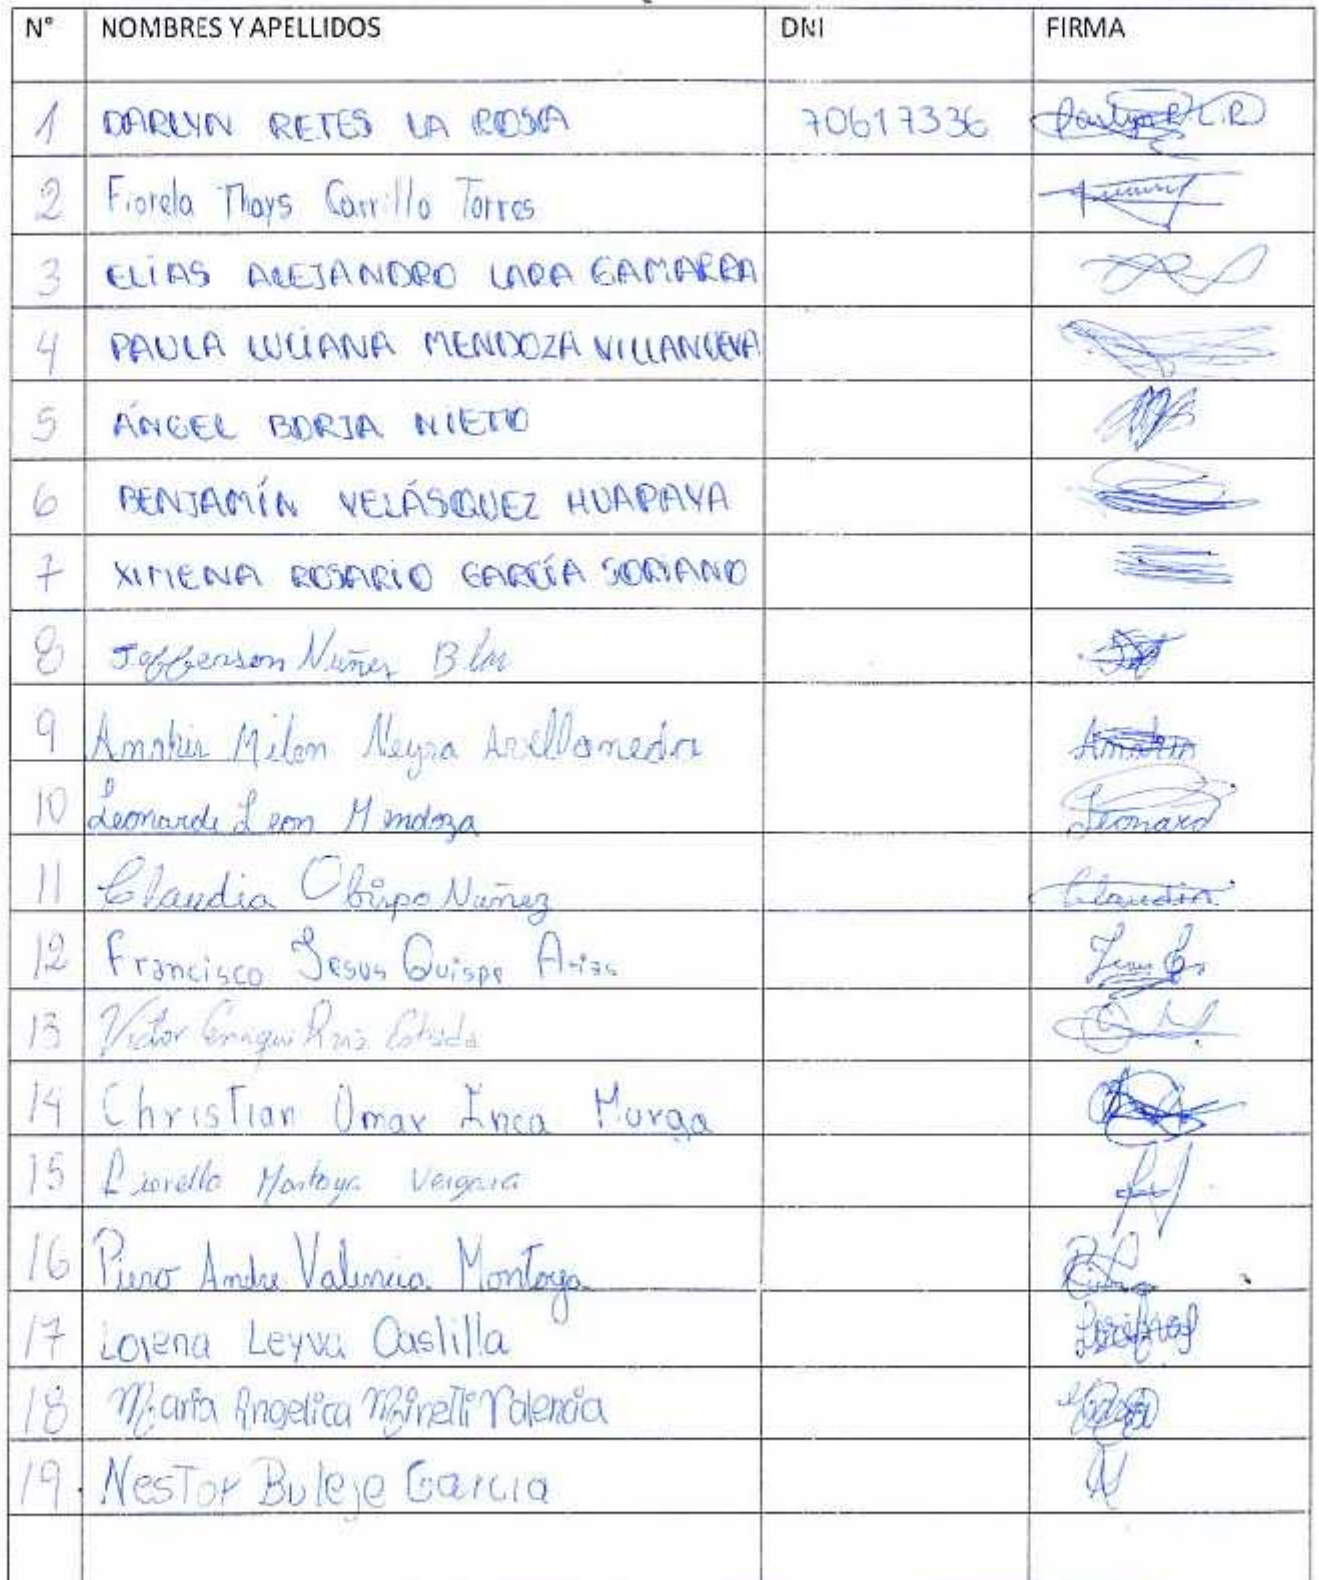 N° NOMBRES Y APELLIDOS DNI FIRMA
1 DARLYN RETES LA ROSA 70617336 Darlyn R L.R
2 Fiorela Thays Carrillo Torres
3 ELÍAS ALEJANDRO LARA GAMARRA
4 PAULA LUCIANA MENDOZA VILLANUEVA
5 ÁNGEL BORJA NIETO
6 BENJAMÍN VELÁSQUEZ HUAPAYA
7 XIMENA ROSARIO GARCÍA SORIANO
8 Jefferson Nuñez
9 Milan Neyra Avellaneda
10 Leonardo Leon Mendoza Leonard
11 Claudia Obispo Nuñez Claudia
12 Francisco Jesus Quispe Arias
13 Victor Enrique Ruiz Estrada
14 Christian Omar Inca Murga
15 Fiorella Montoya Vergara
16 Piero Andre Valencia Montoya
17 Lorena Leyva Castilla
18 Maria Angelica Valencia
19 Nestor Buleje Garcia